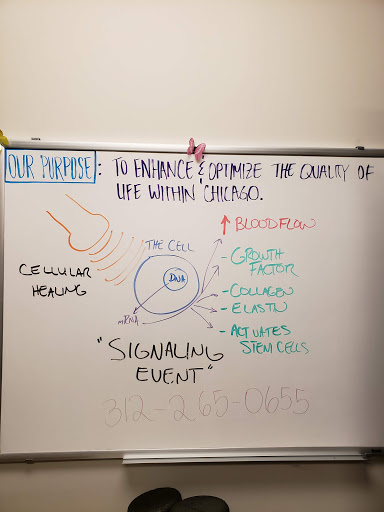 OUR PURPOSE: TO ENHANCE & OPTIMIZE THE QUALITY OF
LIFE WITHIN CHICAGO.
CELLULAR
HEALING
THE CELL
DNA
mRNA
↑ BLOODFLOW
- GROWTH
FACTOR
- COLLAGEN
- ELASTIN
- ACTIVATES
STEM CELLS
"SIGNALING
EVENT"
312-265-0655